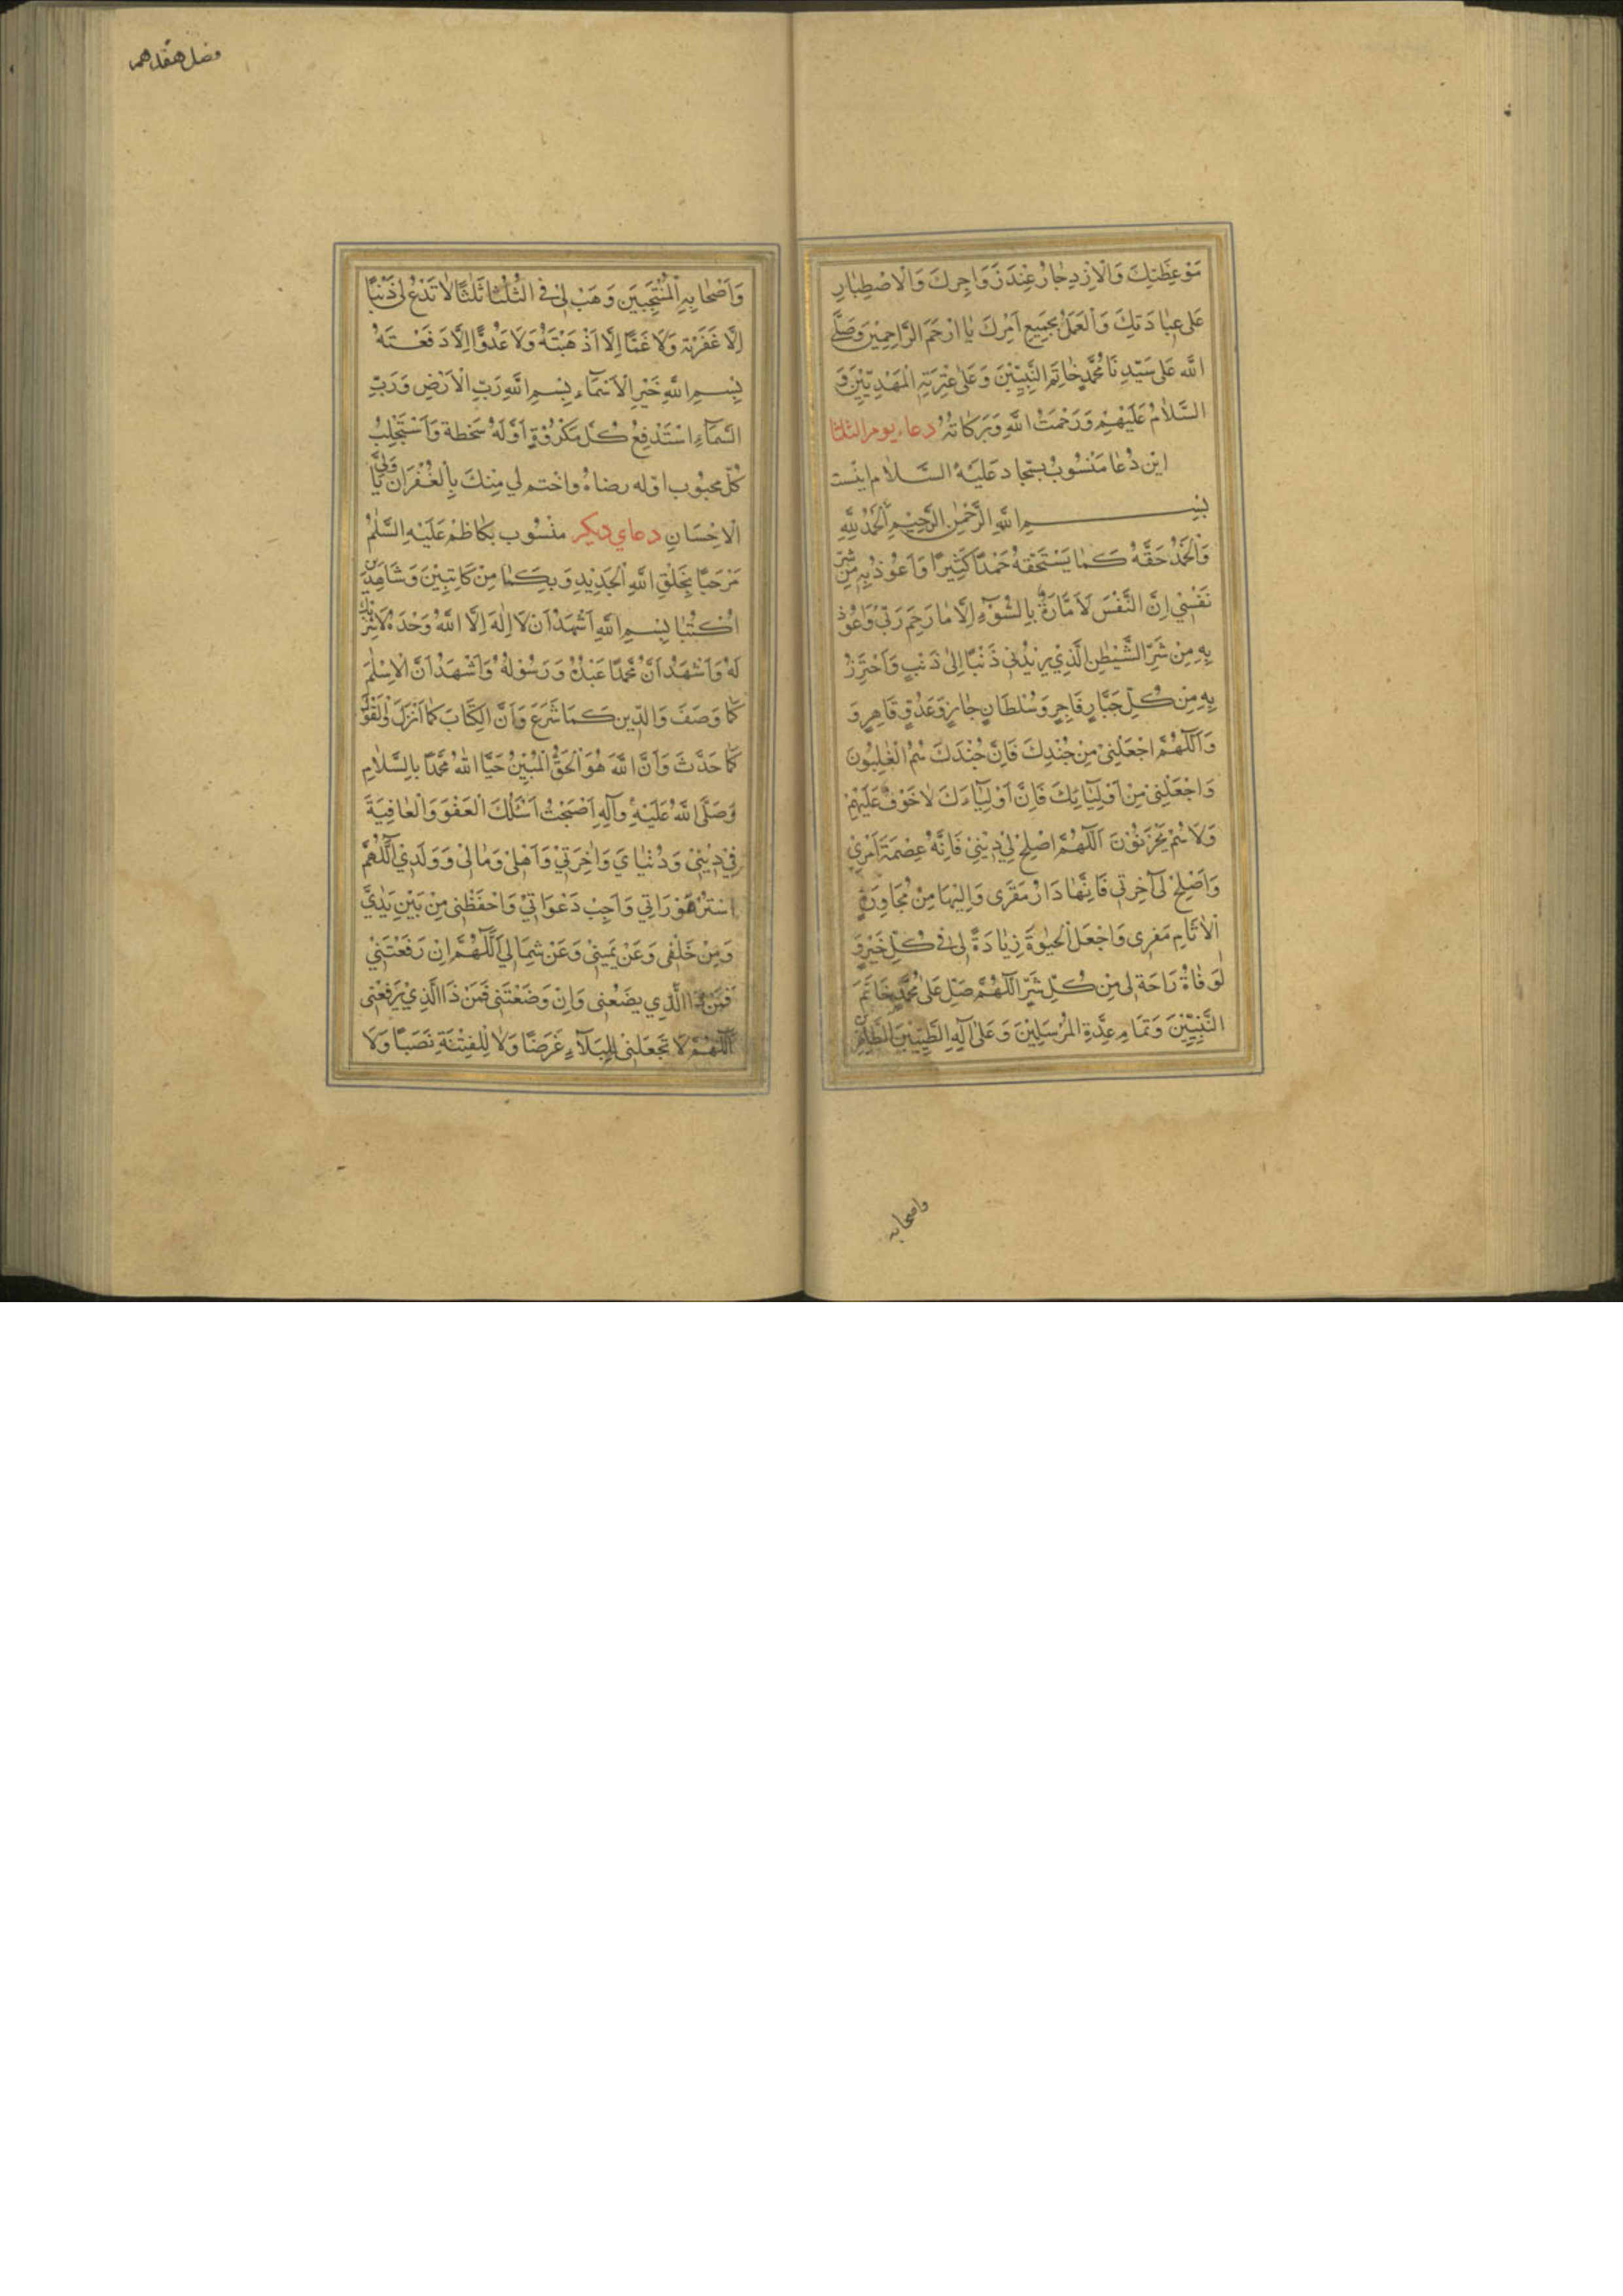 مَوْعِظَتِكَ وَالْاِزْدِجٰارُ عِنْدَ زَوَاجِرِكَ وَالْاصْطِبٰارِ
عَلیٰ عِبٰادَتِكَ وَالْعَمَلُ بِجَمِيعِ اَمْرِكَ يٰا ارْحَمَ الرَّاحِمِيْنَ وَصَلَّے
اللّٰه عَلیٰ سَيِّدِنَا مُحَمَّدٍ خٰاتَمِ النَّبِيِّيْنَ وَعَلیٰ عِتْرَتِهِ الْمَهْدِيّيْنَ وَ
السَّلٰامُ عَلَيْهِمْ وَرَحْمَتُ اللّٰهِ وَبَرَكٰاتُهُ دعاء يوم الثلثا
اين دُعٰا مَنْسُوبُ بسجاد عَلَيْهُ السَّلٰام اينست
بِسْمِ اللّٰهِ الرَّحْمٰنِ الرَّحِيْمِ اَلْحَمْدُ لِلّٰهِ
وَالْحَمْدُ حَقَّهُ كَمٰا يَسْتَحِقهُ حَمْدًا كَثِيرًا وَاَعُوذُ بِهِ مِنْ شَرِّ
نَفْسْي اِنَّ النَّفْسَ لَاَمَّارَةٌ بِالسُّوۤءِ اِلَّا مٰا رَحِمَ رَبّي وَاَعُوْذُ
بِهِ مِنْ شَرِّ الشَّيْطٰنِ الَّذِيْ يَزِيْدُنی ذَنْبًا اِلیٰ ذَنْبٍ وَاَحْتَرِزُ
بِهِ مِنْ كُلِّ جَبَّارٍ فَاجِرٍ وَسُلْطَانٍ جٰایرٍ وَعَدُوٍّ قٰاهِرٍ وَ
وَاَللّٰهُمَّ اجْعَلْنِیْ مِنْ جُنْدِكَ فَاِنَّ جُنْدَكَ هُمُ الْغٰلِبُونَ
وَاجْعَلْنِی مِنْ اَوْلِيٰائِكَ فَاِنَّ اَوْلِيٰاءَكَ لٰا خَوْفٌ عَلَيْهِمْ
وَلَا هُمْ يَحْزَنُوْنَ اَللّٰهُمَّ اصْلِحْ لِيْ دِيْنِيْ فَاِنَّهُ عِصْمَةُ اَمْرِيْ
وَاَصْلِحْ لی آخِرَتی فَاِنَّهٰا دَارُ مَقَرّی وَاِلَيْهَا مِنْ مُجَاوِرَةِ
اللٴَامِ مَفرِی وَاجْعَلِ الْحَيٰوةَ زِيٰادَةً لی فی كُلِّ خَيْرٍ وَ
لْوَفٰاةَ رَاحَةً لی مِنْ كُلِّ شَرٍّ اَللّٰهُمَّ صَلِّ عَلیٰ مُحَمَّدٍ خَاتَمِ
النَّبِيِّيْنَ وَتَمَامِ عِدَّةِ الْمُرْسَلِيْنَ وَعَلیٰ آلِهِ الطَّيِّبِيْنَ الطَّاهِرِيْنَ
واصحابه
فصل هفدهم
وَاَصْحٰابِهِ الْمُنْتَجَبِيَن وَهَبْ لِیْ فی الثُّلٰثٰا ثَلٰثًا لٰا تَدَعْ لی ذَنْبًا
اِلَّا غَفَرْتَهُ وَلَا غَمًّا اِلَّا اَذْهَبْتَهُ وَلَا عَدُوًّا اِلَّا دَفَعْتَهُ
بِسْمِ اللّٰهِ خَيْرِ الْاَسْمَاۤءِ بِسْمِ اللّٰهِ رَبِّ الْاَرْضِ وَرَبِّ
السَّمَاۤءِ اسْتَدْفِعُ كُلَّ مَكْرُوْهٍ اَوَّلَهُ سَخَطهُ وَاَسْتَجْلِبُ
كُلَّ محبُوب اوّله رضاهُ واخْتم لي مِنْكَ بِالْغُفْرَانِ يَا وَلِيَّ
الْاحْسَانِ دعاي ديكر منْسُوب بكاظمْ عَلَيْهِ السَّلٰمُ
مَرْحَبًا بِخَلْقِ اللّٰهِ الْجَدِيْدِ وَبِكُمٰا مِنْ كَاتِبِيْنَ وَشَاهِدَيْنِ
اكْتُبٰا بِسْمِ اللّٰهِ اَشْهَدُ اَنْ لَا اِلٰهَ اِلَّا اللّٰهُ وَحْدَهُ لَا شَرِيْكَ
لَهُ وَاَشْهَدُ اَنَّ مُحَمَّدًا عَبْدُهُ وَرَسُوْلُهُ وَاَشْهَدُ اَنَّ الْاِسْلٰمَ
كَمٰا وَصَفَ وَالدّين كَمَا شَرَعَ وَاَنَّ الْكِتَابَ كَمٰا اَنْزَلَ وَالْقَوْلَ
كَمٰا حَدَّثَ وَاَنَّ اللّٰهَ هُوَ الْحَقُّ الْمُبِيْنُ حَيَّا اللّٰهُ مُحَمَّدًا بِالسَّلٰامِ
وَصَلَّی اللّٰهُ عَلَيْهِ وآلِهِ اَصْبَحْتُ اَسْئَلُكَ الْعَفْوَ وَالْعٰافِيَةَ
فِيْ دِيْنِیْ وَدُنْيٰايَ وَاٰخِرَتِيْ وَاَهْلیْ وَمٰالیْ وَوَلَدِيْ اَللّٰهُمَّ
اسْتُرْ عَوْرَاتِي وَاَجِبْ دَعَوَاتِيْ وَاحْفَظْنِی مِنْ بَيْنِ يَدَيَّ
وَمِنْ خَلْفی وَعَنْ يَمينیْ وَعَنْ شِمَالِي اَللّٰهُمَّ اِنْ رَفَعْتَنِيْ
فَمَنْ ذَا الَّذِي يضَعُنِی وَاِنْ وَضَعْتَنِی فَمَنْ ذَا الَّذِيْ يَرْفَعُنِی
اَللّٰهُمَّ لَا تَجْعَلْنِی لِلْبَلَاۤءِ غَرَضًا وَلٰا لِلْفِتْنَةِ نَصَبًا وَلَا